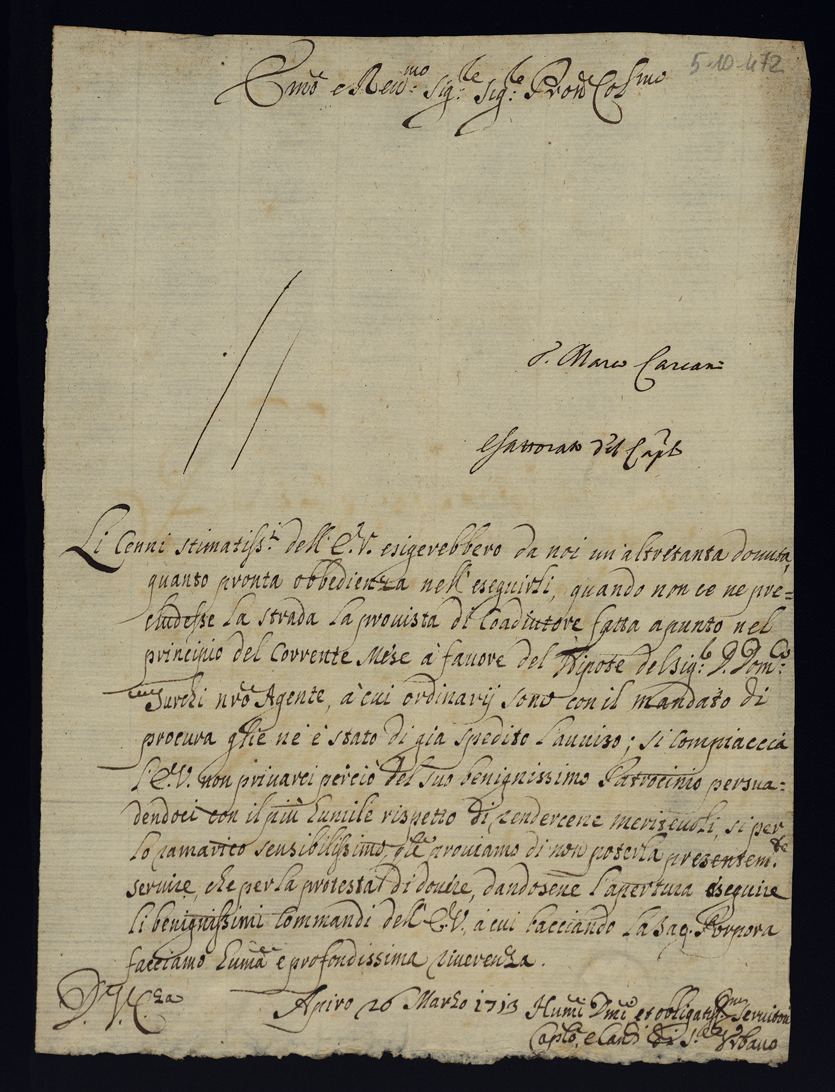 5-10-472
Em̃o e Reu:mo Sig:re Sig:re Prõn Colmo
P. Marco Carcani
Esattorato del Capl̃o
Li Cenni stimatiss:i dell' E.V. esigerebbero da noi un'altretanta douuta,
quanto pronta obbedienza nell' eseguirli, quando non ce ne pre=
cludesse la strada la prouista di Coadiutore fatta apunto nel
principio del Corrente Mese à fauore del Nipote del Sig:r D. Dom:co
Turchi nrõ Agente, à cui ordinarij sono con il mandato di
procura gl'e ne è stato di già spedito l'auuiso; si compiaccia
l'E.V. non priuarci perciò del suo benignissimo Patrocinio persua=
dendoci con il più humile rispetto di rendercene meriteuoli, si per
lo ramarico sensibilissimo, che prouiamo di non poterla presentem:te
seruire, che per la protesta di douere, dandosene l'apertura eseguire
li benignissimi Commandi dell' E.V., à cui bacciando la Sag. Porpora
facciamo humã e profondissima riuerenza.
D. V. E.za
Apiro 26 Marzo 1713 Humĩ Dm̃i et obligatissmi Seruitori
Caplõ, e Can:ci di S. Vrbano